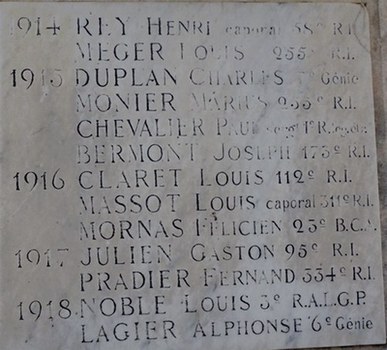 1914 REY HENRI caporal 58e R.I.
MEGER LOUIS 255e R.I.
1915 DUPLAN CHARLES 7e Génie
MONIER MARIUS 255e R.I.
CHEVALIER PAUL
BERMONT JOSEPH 173e R.I.
1916 CLARET LOUIS 112e R.I.
MASSOT LOUIS caporal 311e R.I.
MORNAS FÉLICIEN 23e B.C.A.
1917 JULIEN GASTON 95e R.I.
PRADIER FERNAND 334e R.I.
1918 NOBLE LOUIS 3e R.A.L.G.P.
LAGIER ALPHONSE 6e Génie